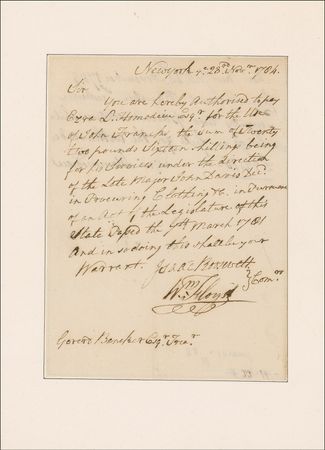 Newyork ye 28th Novr 1784.
Sir
You are hereby Authorised to pay
Ezra L'Homedieu Esqr for the Use
of John Franks, the Sum of Twenty
two pounds Sixteen shilling being
for his Services under the direction
of the Late Major John Davis Decd
in Procuring Clothing &c. in Pursuance
of an Act of the Legislature of this
State Passed the 9th March 1781
And in so doing this shall be your
Warrant. Isaac Roosevelt
Wm Floyd } Comrs
Gerard Bancker Esqr Trear